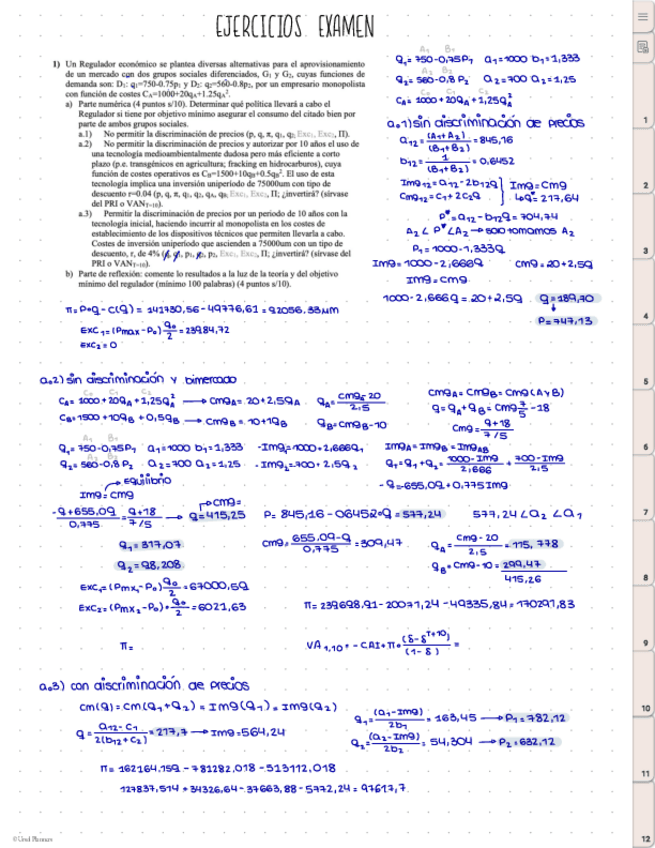 EJERCICIOS EXAMEN
1) Un Regulador económico se plantea diversas alternativas para el aprovisionamiento
de un mercado con dos grupos sociales diferenciados, G1 y G2, cuyas funciones de
demanda son: D1: q1=750-0.75p1 y D2: q2=560-0.8p2, por un empresario monopolista
con función de costes CA=1000+20qA+1.25qA².
a) Parte numérica (4 puntos s/10). Determinar qué política llevará a cabo el
Regulador si tiene por objetivo mínimo asegurar el consumo del citado bien por
parte de ambos grupos sociales.
a.1) No permitir la discriminación de precios (p, q, π, q1, q2, Exc1, Exc2, Π).
a.2) No permitir la discriminación de precios y autorizar por 10 años el uso de
una tecnología medioambientalmente dudosa pero más eficiente a corto
plazo (p.e. transgénicos en agricultura; fracking en hidrocarburos), cuya
función de costes operativos es CB=1500+10qB+0.5qB². El uso de esta
tecnología implica una inversión uniperiodo de 75000um con tipo de
descuento r=0.04 (p, q, π, q1, q2, qA, qB, Exc1, Exc2, Π; ¿invertirá? (sírvase
del PRI o VANT=10).
a.3) Permitir la discriminación de precios por un periodo de 10 años con la
tecnología inicial, haciendo incurrir al monopolista en los costes de
establecimiento de los dispositivos técnicos que permiten llevarla a cabo.
Costes de inversión uniperiodo que ascienden a 75000um con un tipo de
descuento, r, de 4% p1, p2, Exc1, Exc2, Π; ¿invertirá? (sírvase del
PRI o VANT=10).
b) Parte de reflexión: comente lo resultados a la luz de la teoría y del objetivo
mínimo del regulador (mínimo 100 palabras) (4 puntos s/10).
A1 B1
q1=750-0,75P1 a1=1000 b1=1,333
A2 B2
q2=560-0,8P2 a2=700 a2=1,25
C0 C1 C2
CA=1000+20qA+1,25qA²
a.1) sin discriminación de precios
a12=(A1+A2)/(B1+B2)=845,16
b12=1/(B1+B2)=0,6452
Img12=a12-2b12q Img=Cmg
Cmg12=C1+2C2q q*=217,64
P*=a12-b12q=704,74
A2<P*<A2→solo tomamos A2
P1=1000-1,333q
Img=1000-2,666q Cmg=20+2,5q
Img=Cmg
1000-2,666q=20+2,5q q=189,70
P=747,13
π=P·q-C(q)=141730,56-49776,61=92056,33um
EXC1=(Pmax-P0)q0/2=23984,72
EXC2=0
a.2) sin discriminación y bimercado
C0 C1 C2
CA=1000+20qA+1,25qA² → CmgA=20+2,5qA qA=(cmg-20)/2,5
CB=1500+10qB+0,5qB → CmgB=10+1qB qB=CmgB-10
CmgA=CmgB=Cmg(AyB)
q=qA+qB=Cmg7/5-18
Cmg=(q+18)/(7/5)
A1 B1
q1=750-0,75P1 a1=1000 b1=1,333 -Img1=1000+2,666q1
A2 B2
q2=560-0,8P2 a2=700 a2=1,25 -Img2=700+2,5q2
ImgA=ImgB=ImgAB
q1=q1+q2=(1000-Img)/2,666+(700-Img)/2,5
-q=-655,09+0,775Img
equilibrio
Img=Cmg
(-q+655,09)/0,775=(q+18)/(7/5) → q=415,25 P=845,16-0,6452·q=577,24 577,24<a2<a1
cmg=
q1=317,07 cmg=(655,09-q)/0,775=309,47 qA=(cmg-20)/2,5=115,778
q2=98,208 qB=cmg-10=299,47
415,26
EXC1=(Pmx1-P0)q0/2=67000,59
EXC2=(Pmx2-P0)·q0/2=6021,63 π=239698,91-20071,24-49335,84=170291,83
π= VA1,10=-CAI+π·(δ-δ^T+10)/(1-δ)=
a.3) con discriminación de precios
cm(q)=cm(q1+q2)=Img(q1)=Img(q2)
q=(a12-c1)/(2(b12+c2))=217,7→Img=564,24
q1=(a1-Img)/2b1=163,45→P1=782,12
q2=(a2-Img)/2b2=54,304→P2=632,12
π=162164.159-781282,018-513112,018
127837,514+34326,64-37663,88-5772,24=97617,7
1
2
3
4
5
6
7
8
9
10
11
12